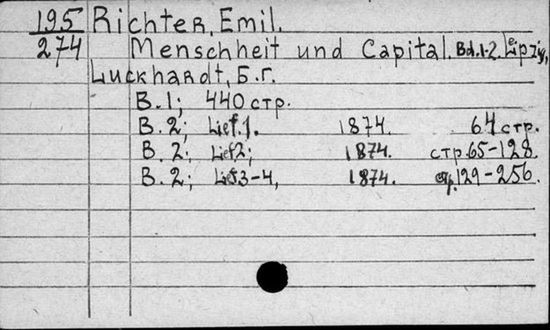 195 Richter, Emil.
274 Menschheit und Capital. Bd.1-2. Leipzig,
Luckhardt, Б.г.
B.1; 440 стр.
B.2; Lief.1. 1874. 64 стр.
B.2; Lief2; 1874. стр.65-128.
B.2; Lief3-4, 1874. стр.129-256.